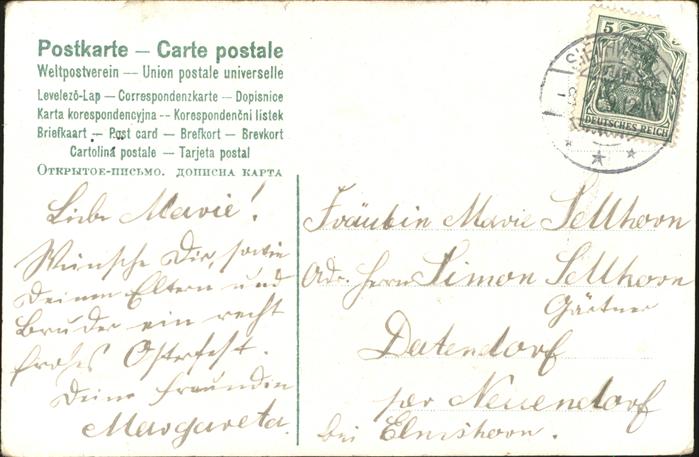 Postkarte — Carte postale
Weltpostverein — Union postale universelle
Levelező-Lap — Correspondenzkarte — Dopisnice
Karta korespondencyjna — Korespondenční lístek
Briefkaart — Post card — Brefkort — Brevkort
Cartolina postale — Tarjeta postal
Открытое-письмо. дописна карта
Liebe Marie!
Wünsche Dir, sowie
Deinen Eltern und
Bruder ein recht
frohes Osterfest.
Deine Freundin
Margareta.
5
DEUTSCHES REICH
Fräulein Marie Sellhorn
Adr. Herrn Simon Sellhorn
Gärtner
Datendorf
per Neuendorf
bei Elmshorn.